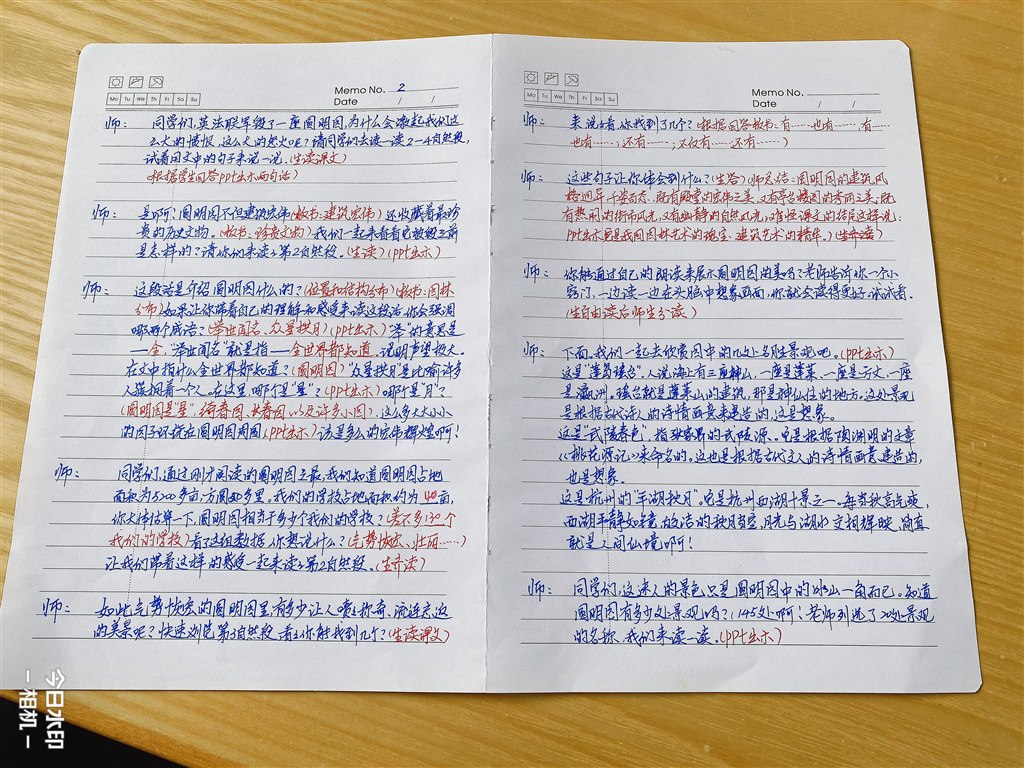 Mo Tu We Th Fr Sa Su
Memo No. 2
Date / /
师: 同学们,英法联军毁了一座圆明园,为什么会激起我们这
么大的愤恨,这么大的怒火呢?请同学们去读一读2-4自然段,
试着用文中的句子来说一说。(生读课文)
(根据学生回答ppt出示两句话)
师: 是啊?圆明园不但建筑宏伟(板书:建筑宏伟)还收藏着最珍
贵的历史文物。(板书:珍贵文物)我们一起来看看它被毁之前
是怎样的?请你们来读读第2自然段。(生读)(ppt出示)
师: 这段话是介绍圆明园什么的?(位置和结构分布)(板书:园林
分布)如果让你带着自己的理解和感受来读这段话,你会强调
哪两个成语?(举世闻名、众星拱月)(ppt出示)"举"的意思是
——全,"举世闻名"就是指——全世界都知道,说明声望极大。
在文中指什么全世界都知道?(圆明园)"众星拱月"是比喻许多
人簇拥着一个人。在这里,哪个是"星"?(ppt出示)哪个是"月"?
(圆明园是星"绮春园、长春园以及许多小园),这么多大大小小
的园子环抱在圆明园周围(ppt出示)该是多么的宏伟辉煌啊!
师: 同学们,通过刚才阅读的圆明园之最,我们知道圆明园占地
面积为5200多亩,方圆20多里。我们的学校占地面积约为40亩,
你大体估算一下,圆明园相当于多少个我们的学校?(差不多130个
我们的学校)看了这组数据,你想说什么?(气势恢宏、壮丽……)
让我们带着这样的感受一起来读读第2自然段。(生齐读)
师: 如此气势恢宏的圆明园里有多少让人啧啧称奇、流连忘返
的美景呢?快速浏览第3自然段,看看你能找到几个?(生读课文)
Mo Tu We Th Fr Sa Su
Memo No.
Date / /
师: 来说说看,你找到了几个?(根据回答板书:有……也有……,有……
也有……;还有……;不仅有……还有……)
师: 这些句子让你体会到什么?(生答)(师总结:圆明园的建筑风
格迥异,千姿百态,既有殿堂的宏伟之美,又有亭台楼阁的秀丽之美;既
有热闹的街市风光,又有幽静的自然风光,难怪课文的作者这样说:
ppt出示它是我国园林艺术的瑰宝、建筑艺术的精华。)(生齐读)
师: 你能通过自己的朗读来展示圆明园的美吗?老师告诉你一个小
窍门,一边读一边在头脑中想象画面,你就会读得更好,试试看。
(生自由读后师生分读)
师: 下面,我们一起去欣赏园中的几处名胜景观吧。(ppt出示)
这是"蓬岛瑶台"。人说海上有三座神山,一座是蓬莱,一座是方丈,一座
是瀛洲。瑶台就是蓬莱山的建筑,那是神仙住的地方。这处景观
是根据古代诗人的诗情画意来建造的,这是想象。
这是"武陵春色",指张家界的武陵源。它是根据陶渊明的文章
《桃花源记》来命名的,这也是根据古代文人的诗情画意建造的,
也是想象。
这是杭州的"平湖秋月",它是杭州西湖十景之一。每当秋高气爽,
西湖平静如镜,皎洁的秋月当空,月光与湖水交相辉映,简直
就是人间仙境啊!
师: 同学们,这迷人的景色只是圆明园中的冰山一角而已。知道
圆明园有多少处景观吗?(145处啊!)老师列选了20处景观
的名称,我们来读一读。(ppt出示)
今日水印
一相机一